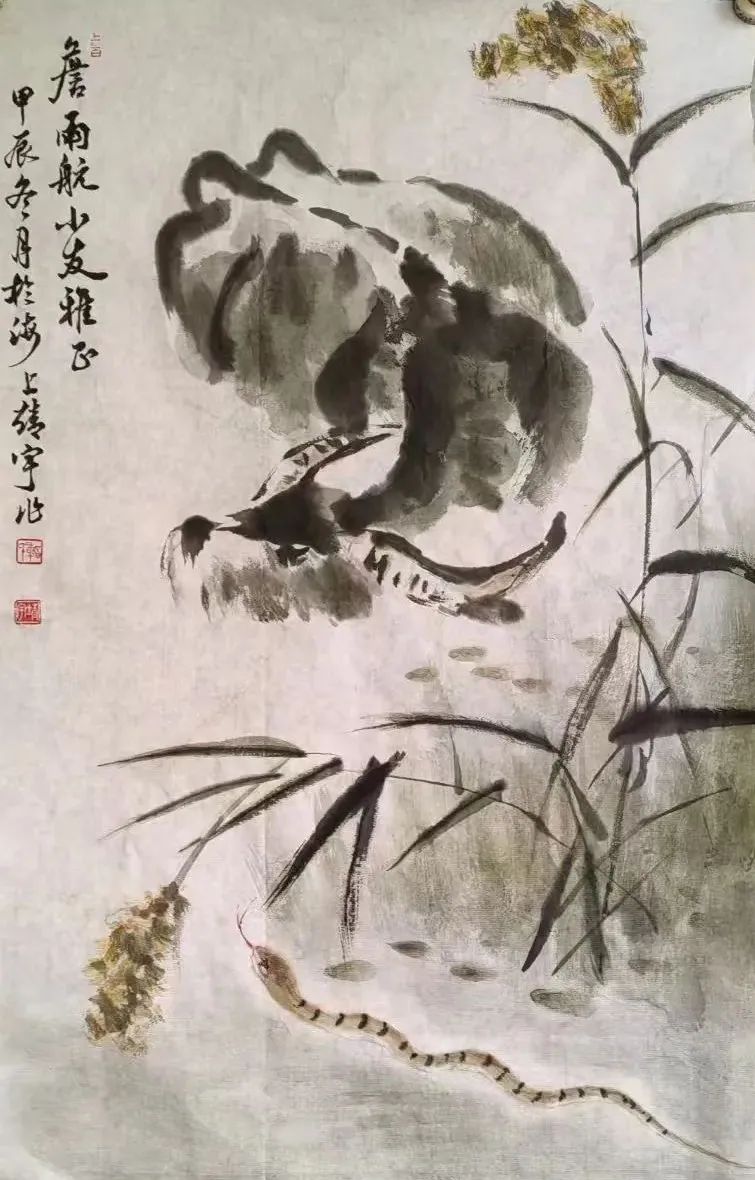 詹雨航小友雅正
甲辰冬月於海上靖宇作